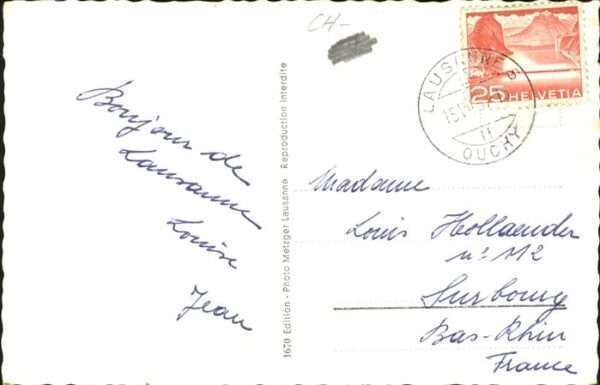 CH-
25 HELVETIA
LAUSANNE 3
OUCHY
Bonjour de
Lausanne
Louise
Jean
1670 Edition - Photo Metzger Lausanne Reproduction interdite
Madame
Louis Hollaender
n° 112
Surbourg
Bas-Rhin
France